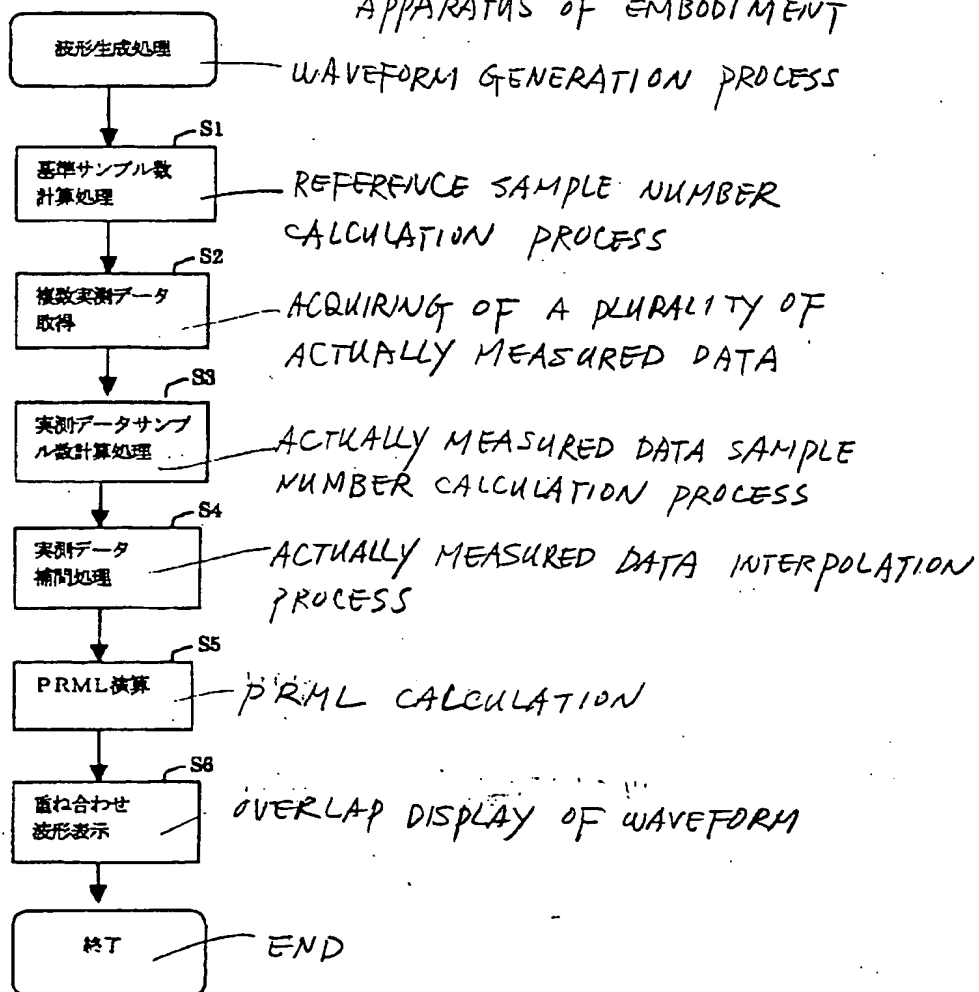 APPARATUS OF EMBODIMENT
波形生成処理
WAVEFORM GENERATION PROCESS
S1
基準サンプル数
計算処理
REFERENCE SAMPLE NUMBER
CALCULATION PROCESS
S2
複数実測データ
取得
ACQUIRING OF A PLURALITY OF
ACTUALLY MEASURED DATA
S3
実測データサンプ
ル数計算処理
ACTUALLY MEASURED DATA SAMPLE
NUMBER CALCULATION PROCESS
S4
実測データ
補間処理
ACTUALLY MEASURED DATA INTERPOLATION
PROCESS
S5
PRML演算
PRML CALCULATION
S6
重ね合わせ
波形表示
OVERLAP DISPLAY OF WAVEFORM
終了
END